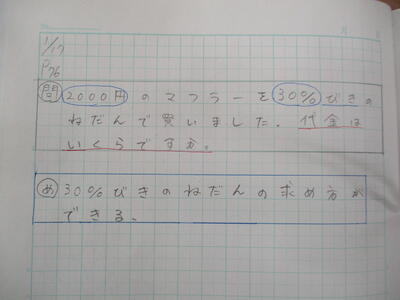 1/17
P76
問 2000円のマフラーを30%びきの
ねだんで買いました。代金は
いくらですか。
め 30%びきのねだんの求め方が
できる。